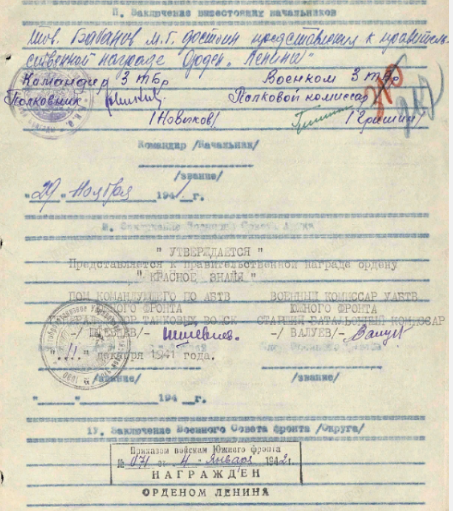 II. Заключение вышестоящих начальников
тов. Бабанов М.Г. достоин представления к правитель-
ственной награде "Орден Ленина"
Командир 3 тбр Военком 3 тбр
Полковник Полковой комиссар
/Новиков/ /Гришин/
Командир /Начальник/
/звание/
"29" Ноября 1941 г.
" УТВЕРЖДАЕТСЯ "
Представляется к правительственной награде ордену
" КРАСНОЕ ЗНАМЯ " -
ПОМ КОМАНДУЮЩЕГО ПО АБТВ ВОЕННЫЙ КОМИССАР УАБТВ
ЮЖНОГО ФРОНТА ЮЖНОГО ФРОНТА
ТАНКОВЫХ ВОЙСК СТАРШИЙ БАТАЛЬОННЫЙ КОМИССАР
-/ ШТЕВНЕВ/- -/ ВАЛУЕВ/-
"11" декабря 1941 года.
/звание/ /звание/
"____"________194__г.
IУ. Заключение Военного Совета фронта /Округа/
Приказом войскам Южного фронта
№ 071 от 4 января 1942г.
НАГРАЖДЕН
ОРДЕНОМ ЛЕНИНА